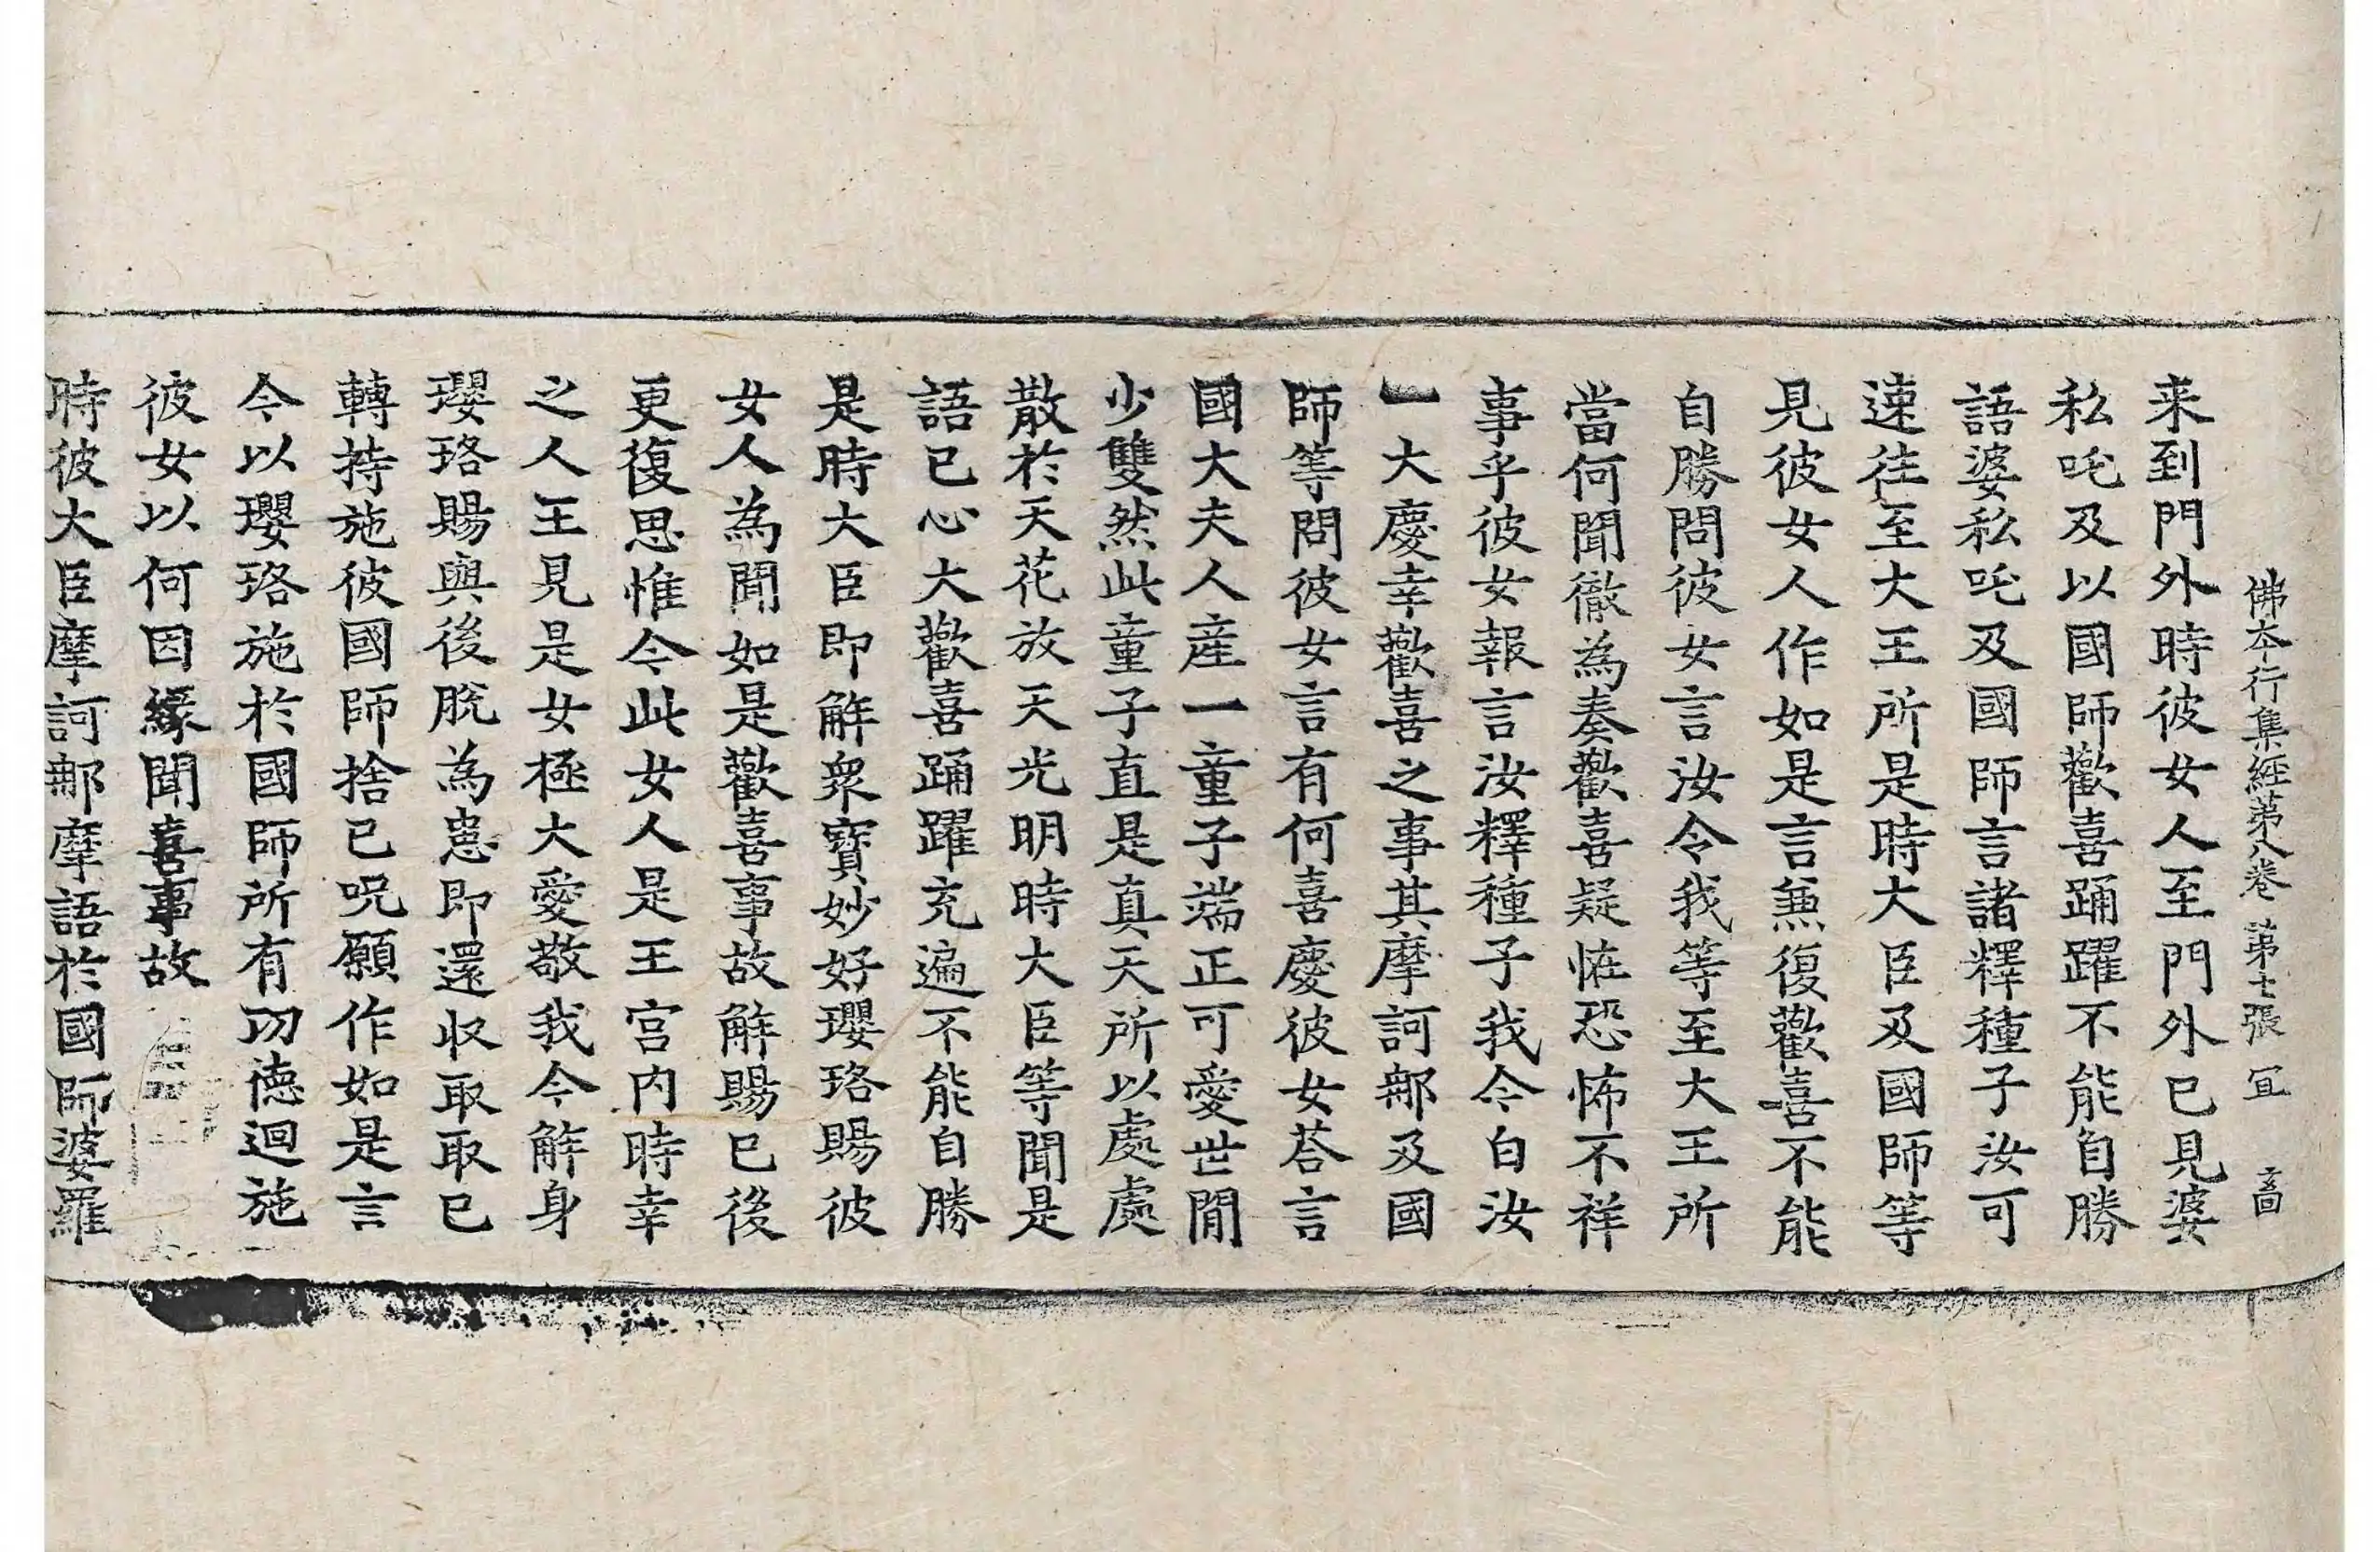 佛本行集經第八卷 第七張 冝
来到門外時彼女人至門外已見婆
私吒及以國師歡喜踊躍不能自勝
語婆私吒及國師言諸釋種子汝可
速往至大王所是時大臣及國師等
見彼女人作如是言無復歡喜不能
自勝問彼女言汝令我等至大王所
當何聞徹為奏歡喜疑恠恐怖不祥
事乎彼女報言汝釋種子我今白汝
大慶幸歡喜之事其摩訶那及國
師等問彼女言有何喜慶彼女荅言
國大夫人産一童子端正可愛世間
少雙然此童子直是真天所以處處
散於天花放天光明時大臣等聞是
語已心大歡喜踊躍充遍不能自勝
是時大臣即解衆寶妙好瓔珞賜彼
女人為聞如是歡喜事故解賜已後
更復思惟今此女人是王宮内時幸
之人王見是女極大愛敬我今解身
瓔珞賜與後脫為患即還収取取已
轉持施彼國師捨已呪願作如是言
今以瓔珞施於國師所有功德迴施
彼女以何因緣聞喜事故
時彼大臣摩訶那摩語於國師婆羅